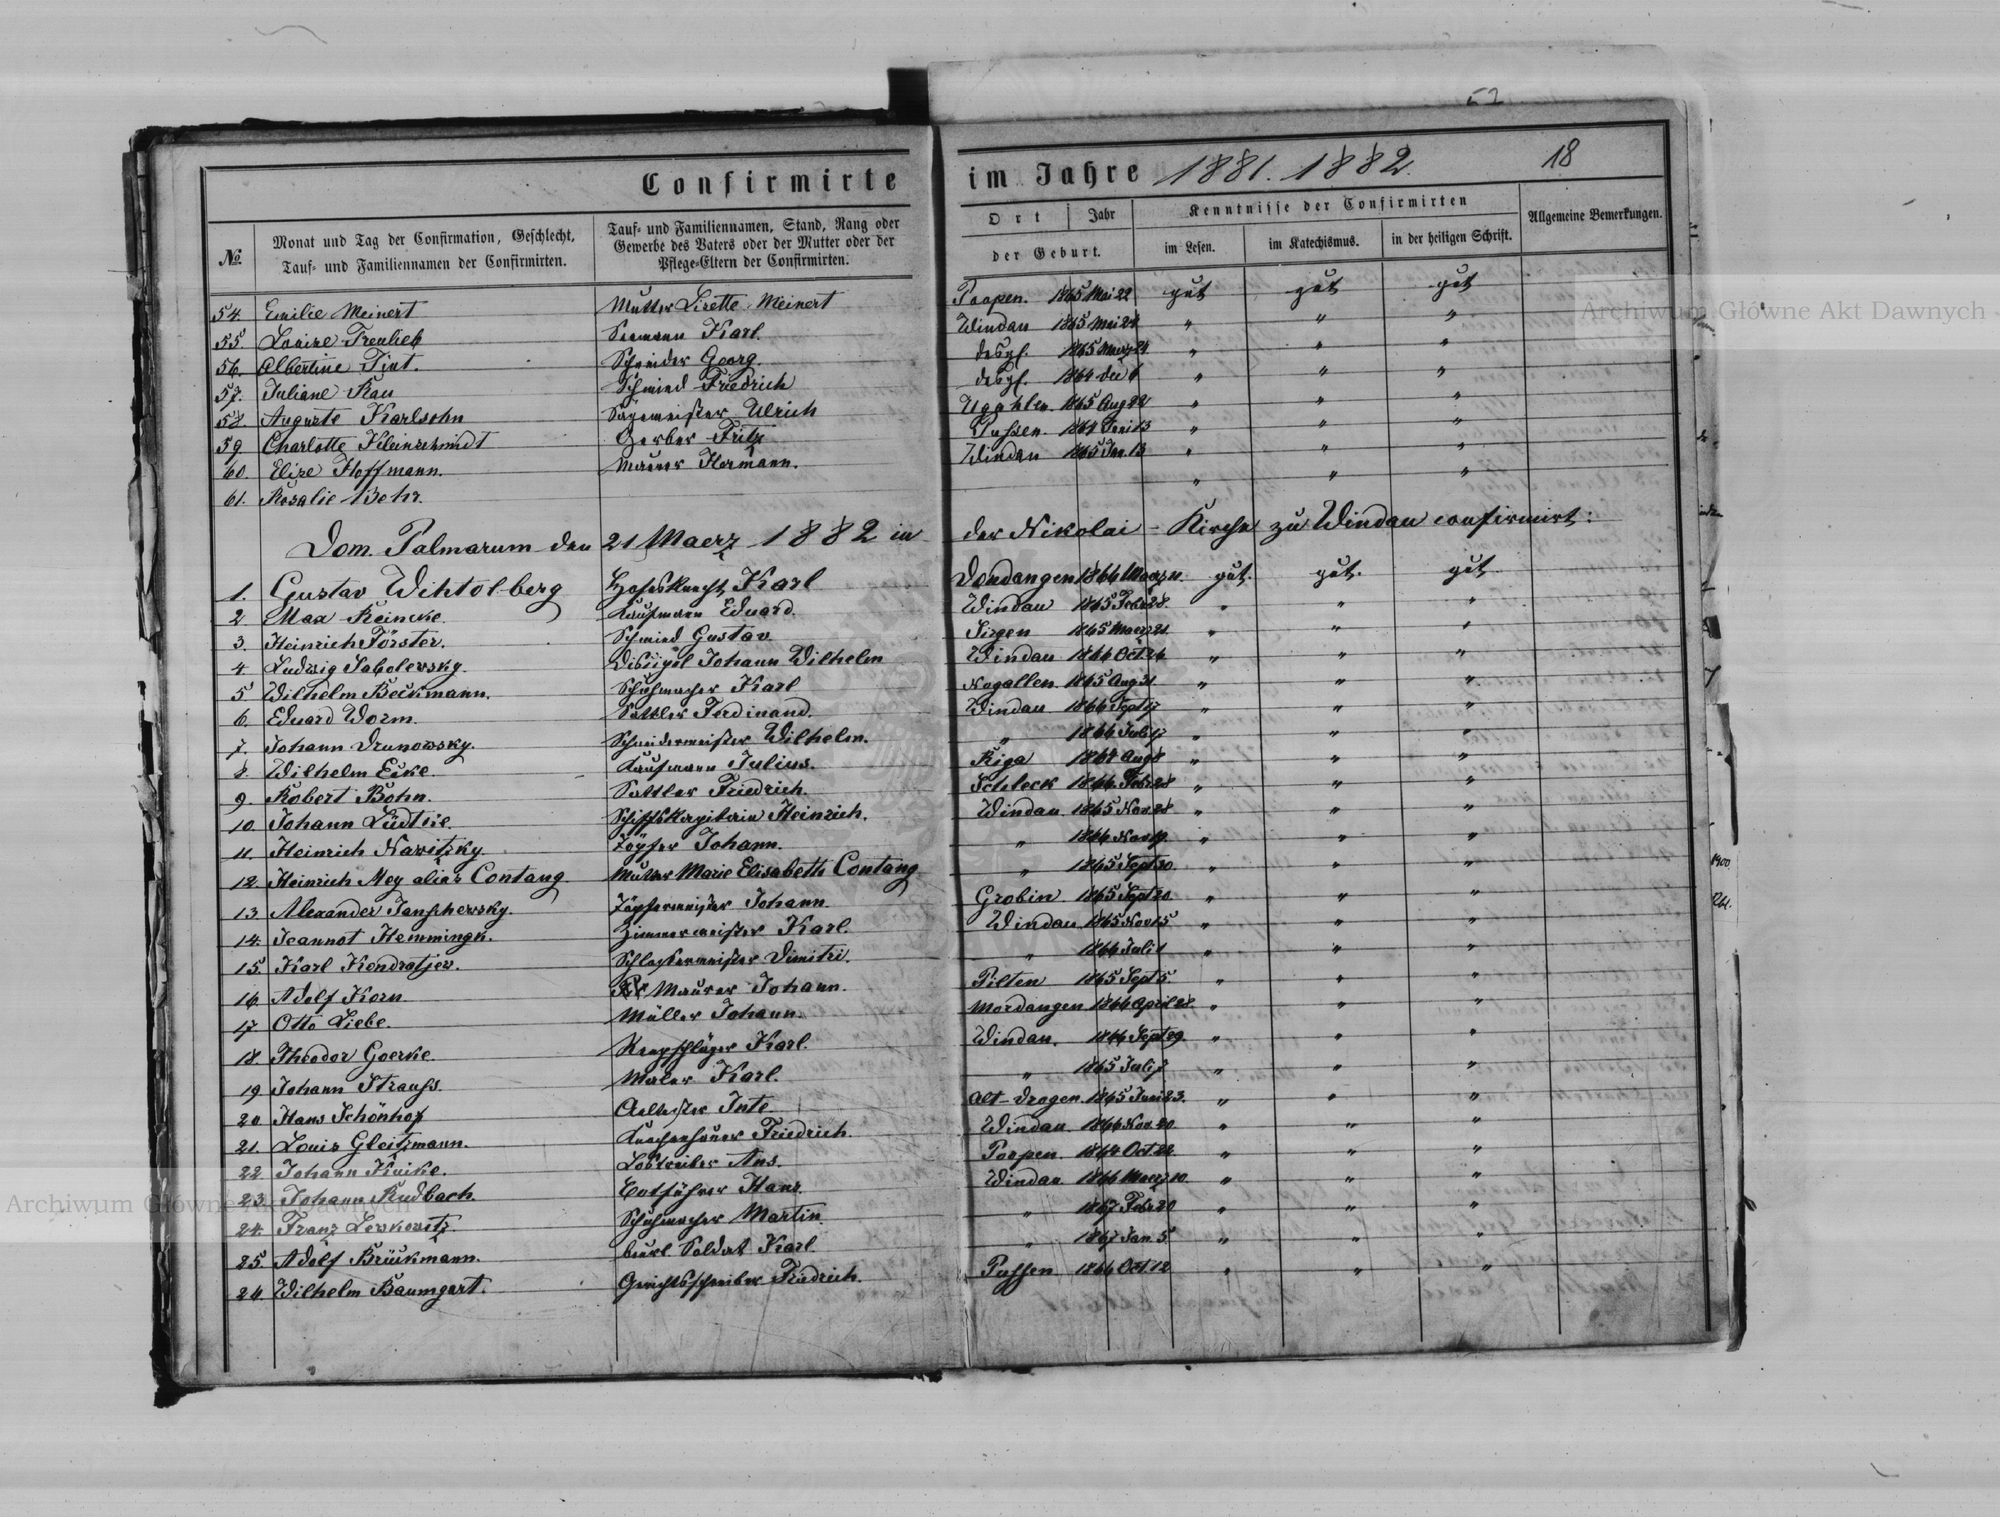 52
Confirmirte im Jahre 1881. 1882. 18
№ Monat und Tag der Confirmation, Geschlecht, Tauf- und Familiennamen der Confirmirten. Tauf- und Familiennamen, Stand, Rang oder Gewerbe des Vaters oder der Mutter oder der Pflege-Eltern der Confirmirten. Ort Jahr der Geburt. Kenntnisse der Confirmirten im Lesen. im Katechismus. in der heiligen Schrift. Allgemeine Bemerkungen.
54. Emilie Meinert Mutter Lisette Meinert Paapen. 1865 Mai 22 gut gut gut
55. Louise Freulieb Seemann Karl. Windau 1865 Mai 24 " " "
56. Albertine Tint. Schneider Georg. desgl. 1865 Maerz 24 " " "
57. Juliane Rau Schmied Friedrich desgl. 1864 Dec 6 " " "
58. Auguste Karlsohn Sägemeister Ulrich 1865 Aug 22 " " "
59. Charlotte Kleinschmidt Gerber Fritz Puhsen. 1864 Juni 13 " " "
60. Elise Hoffmann. Maurer Hermann. Windau 1865 Jan. 13 " " "
61. Rosalie Behr. " " "
Dom. Palmarum den 21 Maerz 1882 in der Nikolai-Kirche zu Windau confirmirt:
1. Gustav Wihtol-berg Hofsknecht Karl Dondangen 1864 Maerz 11. gut. gut. gut
2. Max Reincke. Kaufmann Eduard. Windau 1865 Febr 28. " " "
3. Heinrich Förster. Schmied Gustav. Sirgen 1865 Maerz 21. " " "
4. Ludwig Sabolewsky. Johann Wilhelm Windau 1866 Oct 26 " " "
5 Wilhelm Beckmann. Schuhmacher Karl Nogallen. 1865 Aug 31 " " "
6. Eduard Worm. Sattler Ferdinand. Windau 1866 Sept 17 " " "
7. Johann Drunowsky. Schneidermeister Wilhelm. " 1866 Juli 17 " " "
8. Wilhelm Ecke. Kaufmann Julius. Riga 1864 Aug 8 " " "
9. Robert Bohn. Sattler Friedrich. Schleck 1866 Febr 28 " " "
10. Johann Lüdtke. Schiffskapitain Heinrich. Windau 1865 Nov 28 " " "
11. Heinrich Nawitzky. Töpfer Johann. " 1866 Nov 19. " " "
12. Heinrich Mey alias Contang. Mutter Marie Elisabeth Contang " 1865 Sept 20. " " "
13. Alexander Janschewsky. Töpfermeister Johann. Grobin 1865 Sept 20. " " "
14. Jeannot Hemmingk. Zimmermeister Karl. Windau 1865 Nov 15 " " "
15. Karl Kondratjew. Schlossermeister Dimitri. " 1866 Juli 1 " " "
16. Adolf Korn. Maurer Johann. Pilten 1865 Sept 5. " " "
17. Otto Liebe. Müller Johann. Mordangen 1866 April 28. " " "
18. Theodor Goerke. Reepschläger Karl. Windau. 1866 Sept 29. " " "
19. Johann Strauss. Maler Karl. " 1865 Juli 7 " " "
20. Hans Schönhof Inte. Alt-Drogen. 1865 Juni 23. " " "
21. Louis Gleitzmann. Knochenhauer Friedrich. Windau. 1866 Nov. 20. " " "
22. Johann Knike. Lostreiber Ans. Popen. 1864 Oct. 22. " " "
23. Johann Rudbach. Bootführer Hans. Windau 1866 Maerz 10. " " "
24. Franz Lewkowitz. Schuhmacher Martin. " 1867 Febr 20 " " "
25. Adolf Brückmann. beurl Soldat Karl. " 1867 Jan. 5. " " "
26. Wilhelm Baumgart. Gerichtsschreiber Friedrich. Pussen 1866 Oct. 12 " " "
Archiwum Główne Akt Dawnych
Archiwum Główne Akt Dawnych